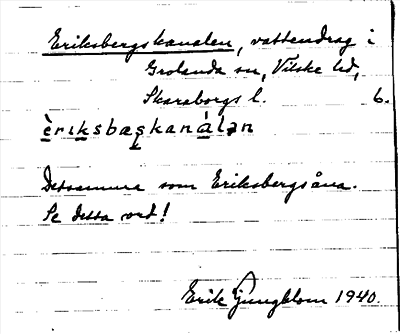 Eriksbergskanalen, vattendrag i
Grolanda sn, Vilske hd,
Skaraborgs l. 6.
èriksbæskanálən
Detsamma som Eriksbergsåna.
Se detta ord!
Erik Ljungblom 1940.